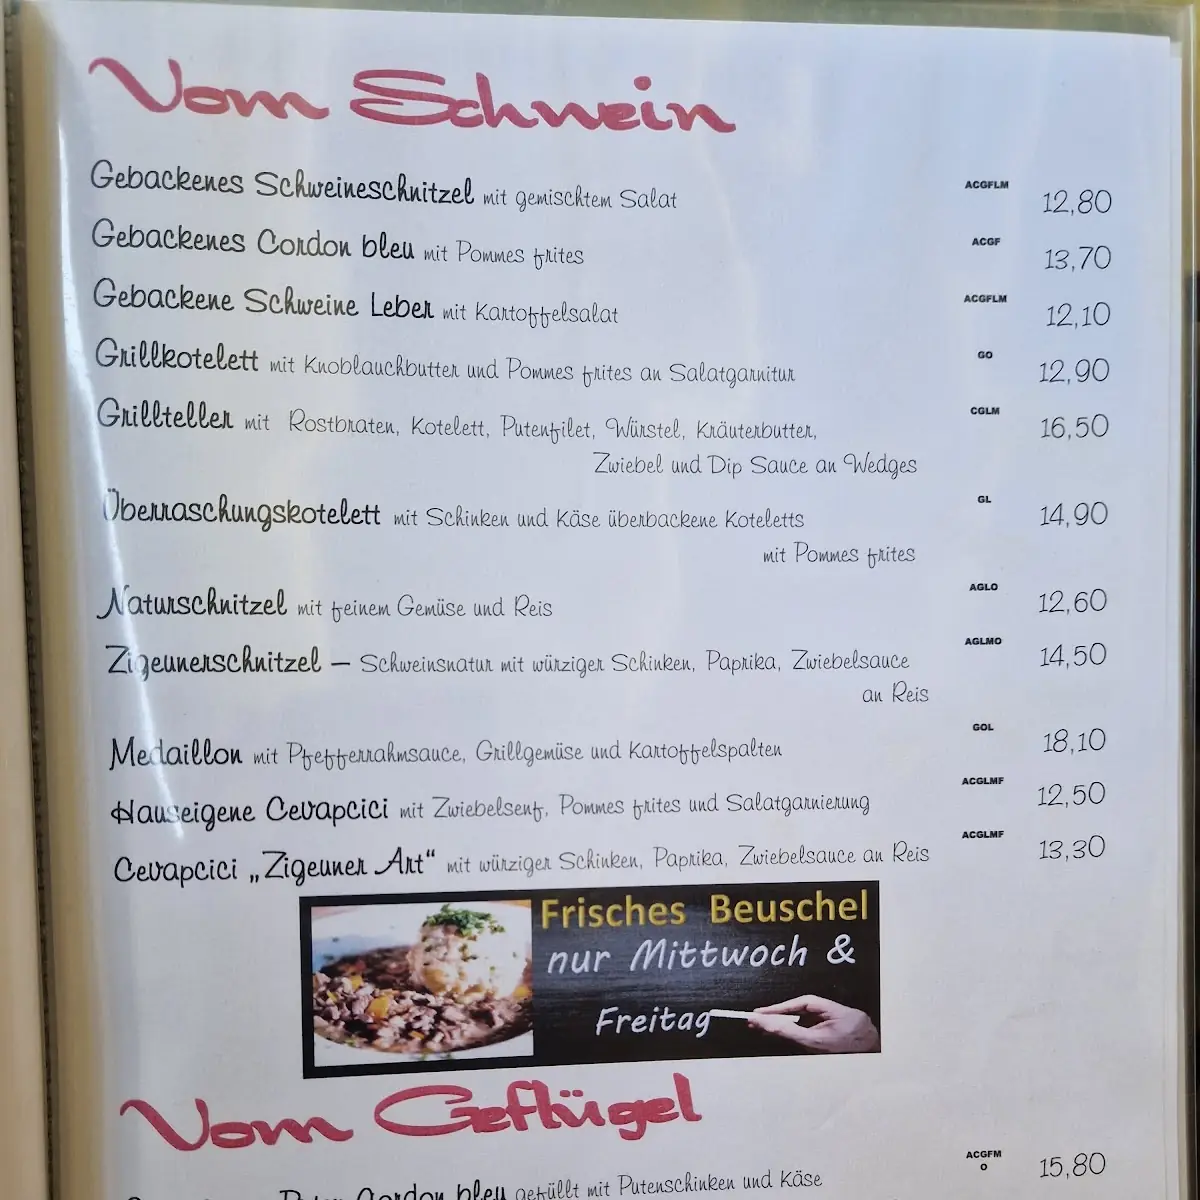 Vom Schwein
Gebackenes Schweineschnitzel mit gemischtem Salat ACGFLM 12,80
Gebackenes Cordon bleu mit Pommes frites ACGF 13,70
Gebackene Schweine Leber mit Kartoffelsalat ACGFLM 12,10
Grillkotelett mit Knoblauchbutter und Pommes frites an Salatgarnitur GO 12,90
Grillteller mit Rostbraten, Kotelett, Putenfilet, Würstel, Kräuterbutter, CGLM 16,50
Zwiebel und Dip Sauce an Wedges
Überraschungskotelett mit Schinken und Käse überbackene Koteletts GL 14,90
mit Pommes frites
Naturschnitzel mit feinem Gemüse und Reis AGLO 12,60
Zigeunerschnitzel – Schweinsnatur mit würziger Schinken, Paprika, Zwiebelsauce AGLMO 14,50
an Reis
Medaillon mit Pfefferrahmsauce, Grillgemüse und Kartoffelspalten GOL 18,10
Hauseigene Cevapcici mit Zwiebelsenf, Pommes frites und Salatgarnierung ACGLMF 12,50
Cevapcici „Zigeuner Art“ mit würziger Schinken, Paprika, Zwiebelsauce an Reis ACGLMF 13,30
Frisches Beuschel
nur Mittwoch &
Freitag
Vom Geflügel
Cordon bleu gefüllt mit Putenschinken und Käse ACGFM O 15,80